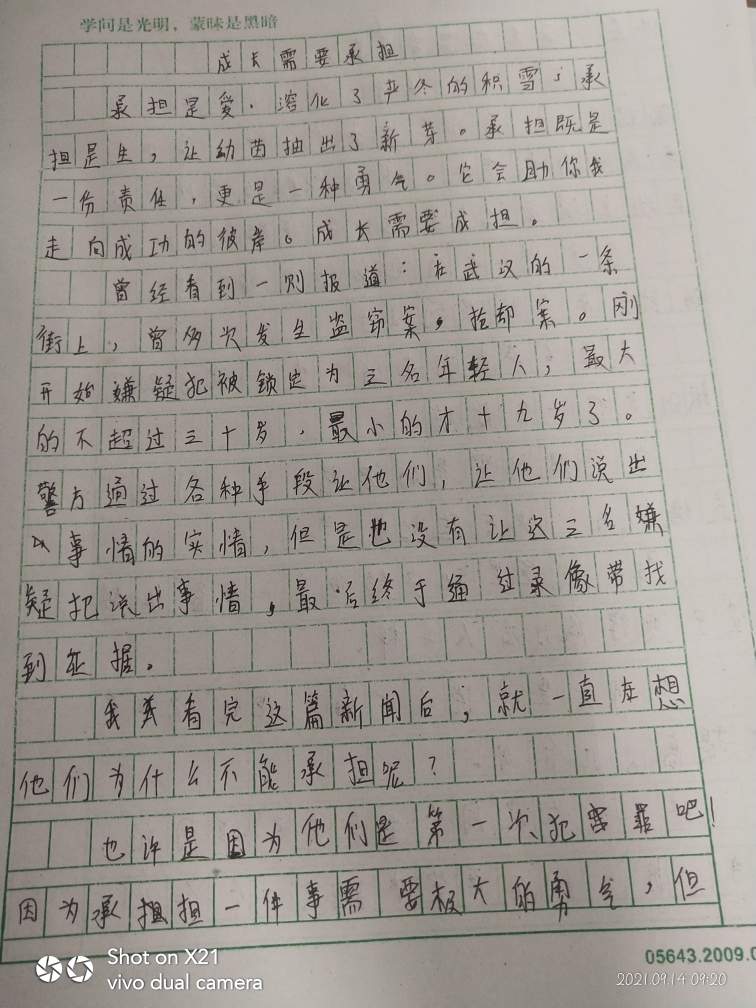 学问是光明，蒙昧是黑暗
成长需要承担
承担是爱，溶化了严冬的积雪；承
担是生，让幼苗抽出了新芽。承担既是
一份责任，更是一种勇气。它会助你我
走向成功的彼岸。成长需要成担。
曾经看到一则报道：在武汉的一条
街上，曾多次发生盗窃案，抢却案。刚
开始嫌疑犯被锁定为三名年轻人，最大
的不超过三十岁，最小的才十九岁了。
警方通过各种手段让他们，让他们说出
事情的实情，但是也没有让这三名嫌
疑犯说出事情，最后终于通过录像带找
到证据。
我看完这篇新闻后，就一直在想
他们为什么不能承担呢？
也许是因为他们是第一次犯罪吧！
因为承担担一件事需要极大的勇气，但
Shot on X21
vivo dual camera
05643.2009.0
2021.09.14 09:20